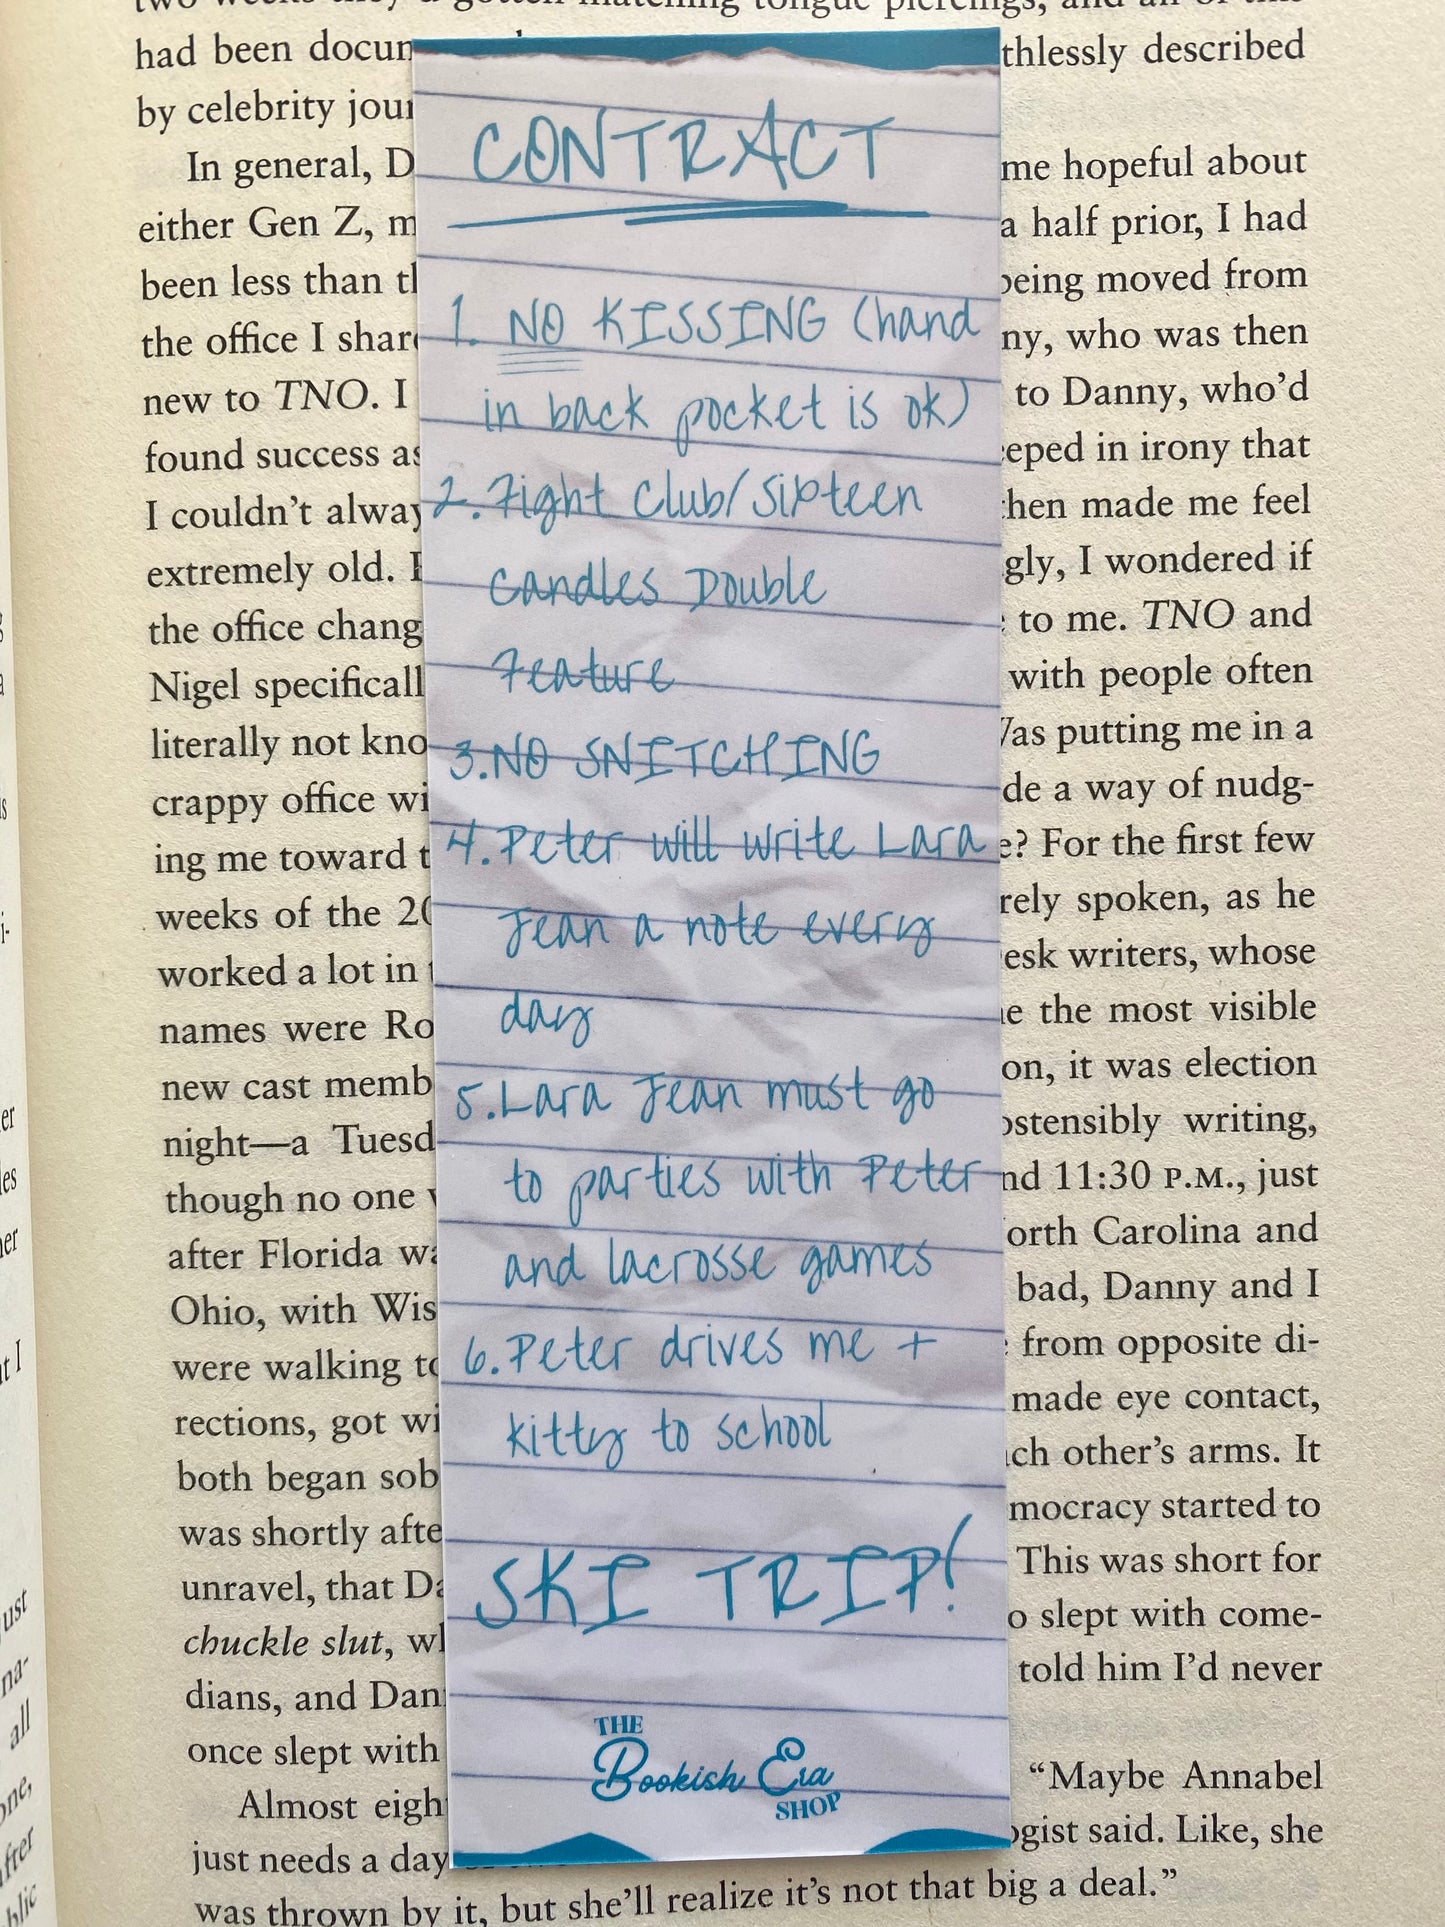 CONTRACT
1. NO KISSING (hand
in back pocket is ok)
2. Fight Club/Sixteen
Candles Double
Feature
3. NO SNITCHING
4. Peter will write Lara
Jean a note every
day
5. Lara Jean must go
to parties with Peter
and lacrosse games
6. Peter drives me +
kitty to school
SKI TRIP!
THE
Bookish Era
SHOP
two weeks they'd gotten matching tongue piercings, and all of this
had been described
by celebrity
In general, me hopeful about
either Gen Z, a half prior, I had
been less than being moved from
the office I who was then
new to TNO. I to Danny, who'd
found success as in irony that
I couldn't then made me feel
extremely old. I wondered if
the office to me. TNO and
Nigel with people often
literally not Was putting me in a
crappy office a way of nudg-
ing me toward For the first few
weeks of the spoken, as he
worked a lot in writers, whose
names were the most visible
new cast it was election
night—a ostensibly writing,
though no one and 11:30 P.M., just
after Florida North Carolina and
Ohio, with bad, Danny and I
were walking from opposite di-
rections, got made eye contact,
both began each other's arms. It
was shortly started to
unravel, that This was short for
chuckle slut, slept with come-
dians, and told him I'd never
once slept with
Almost "Maybe Annabel
just needs a day said. Like, she
was thrown by it, but she'll realize it's not that big a deal."